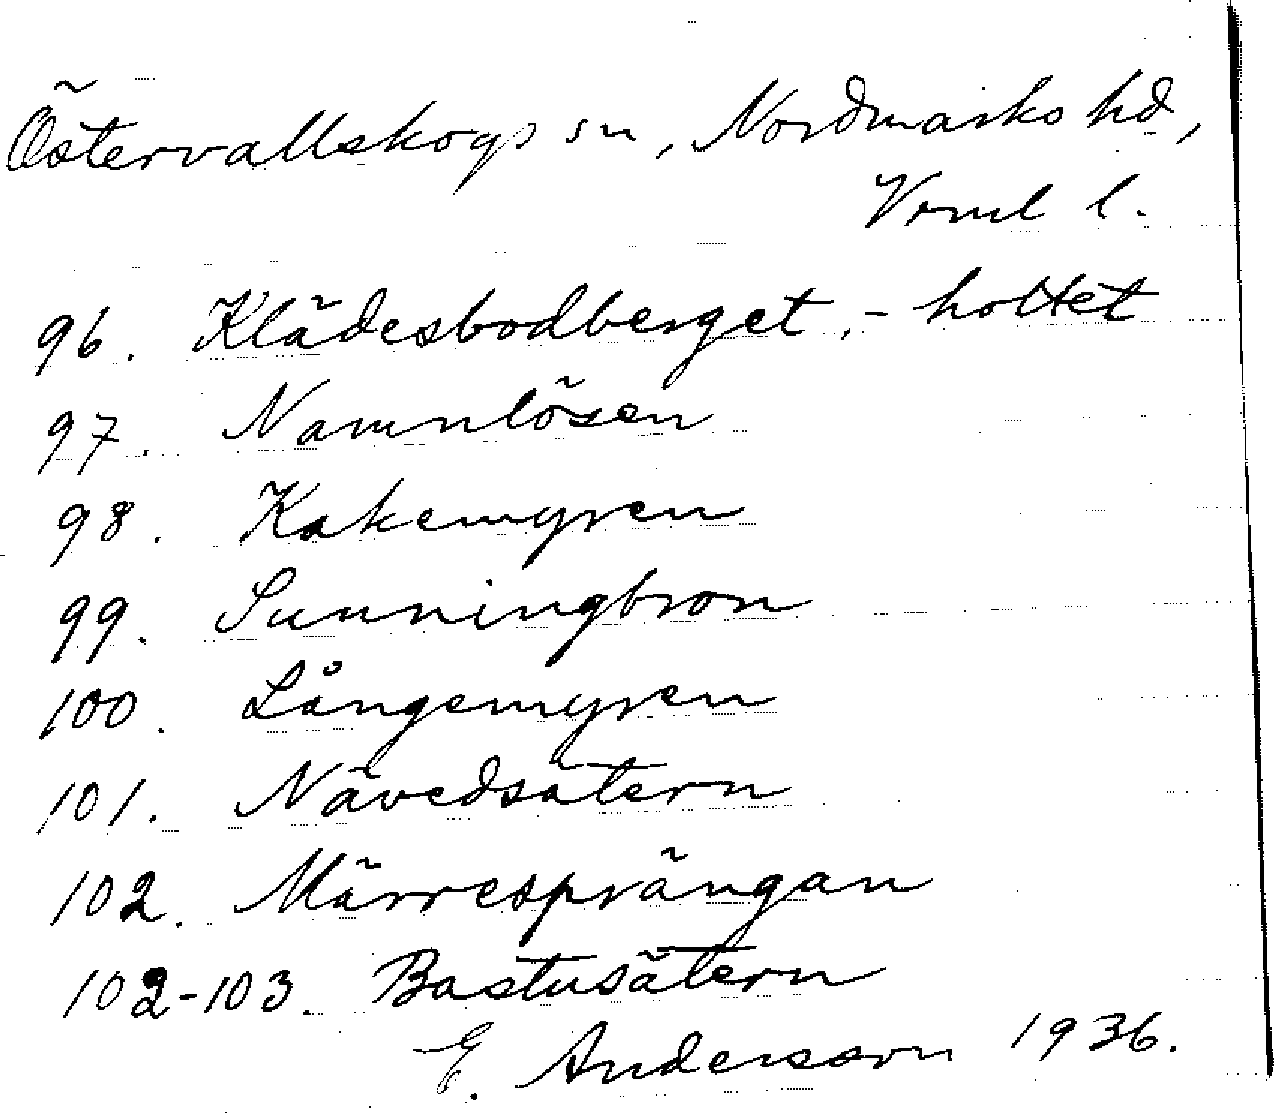 Östervallskogs sn, Nordmarks hd,
Vrml l.
96. Klädesbodberget, - holtet
97. Namnlösen
98. Kakemyren
99. Sunningbron
100. Långemyren
101. Nävedsätern
102. Märresprängan
102-103. Bastusätern
E. Andersson 1936.